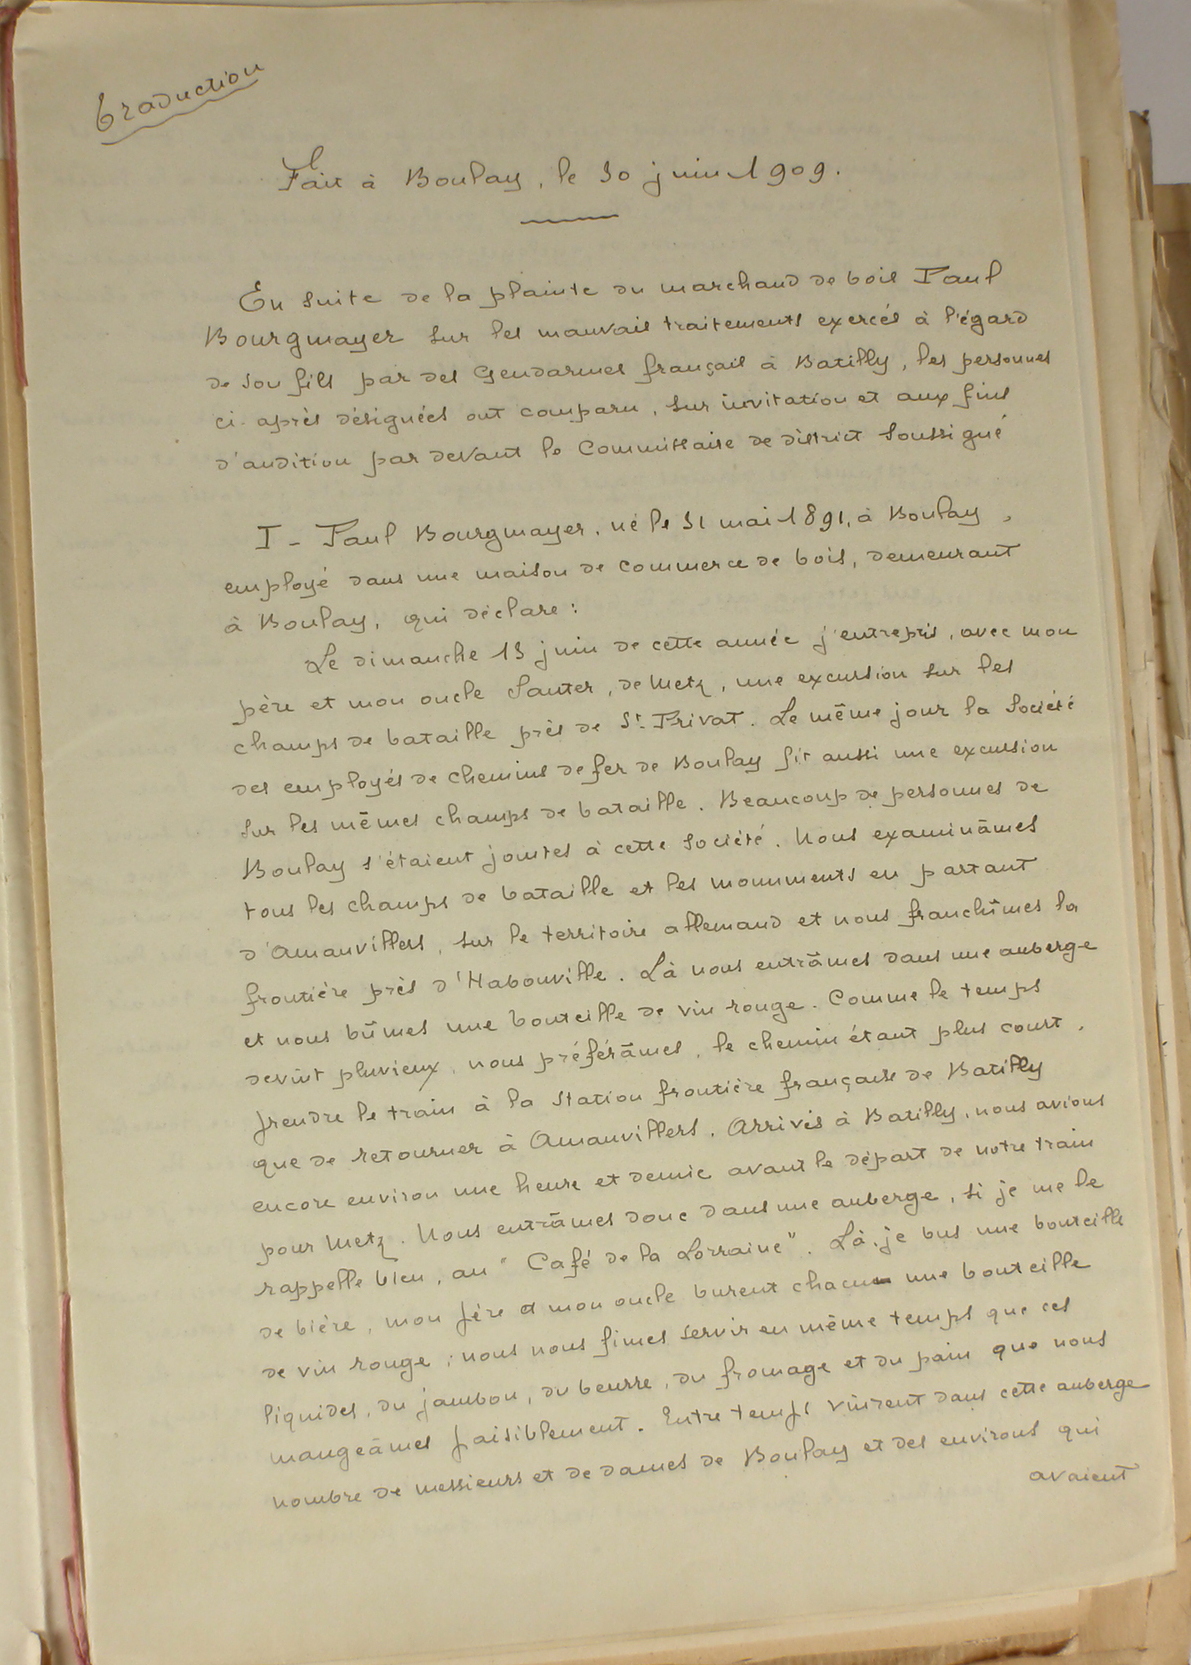 Traduction
Fait à Boulay, le 30 juin 1909.
En suite de la plainte du marchand de bois Paul
Bourgmayer sur les mauvais traitements exercés à l'égard
de son fils par des Gendarmes français à Batilly, les personnes
ci-après désignées ont comparu, sur invitation et aux fins
d'audition par devant le Commissaire de district soussigné
I - Paul Bourgmayer, né le 31 mai 1891, à Boulay,
employé dans une maison de commerce de bois, demeurant
à Boulay, qui déclare :
Le dimanche 13 juin de cette année j'entrepris, avec mon
père et mon oncle Sauter, de Metz, une excursion sur les
champs de bataille près de St Privat. Le même jour la Société
des employés de chemins de fer de Boulay fit aussi une excursion
sur les mêmes champs de bataille. Beaucoup de personnes de
Boulay s'étaient jointes à cette société. Nous examinâmes
tous les champs de bataille et les monuments en partant
d'Amanvillers, sur le territoire allemand et nous franchîmes la
frontière près d'Habonville. Là nous entrâmes dans une auberge
et nous bûmes une bouteille de vin rouge. Comme le temps
devint pluvieux, nous préférâmes, le chemin étant plus court,
prendre le train à la station frontière française de Batilly
que de retourner à Amanvillers. Arrivés à Batilly, nous avions
encore environ une heure et demie avant le départ de notre train
pour Metz. Nous entrâmes donc dans une auberge, si je me le
rappelle bien, au "Café de la Lorraine". Là, je bus une bouteille
de bière, mon père et mon oncle burent chacun une bouteille
de vin rouge ; nous nous fimes servir en même temps que ces
liquides, du jambon, du beurre, du fromage et du pain que nous
mangeâmes paisiblement. Entre temps vinrent dans cette auberge
nombre de messieurs et de dames de Boulay et des environs qui
avaient